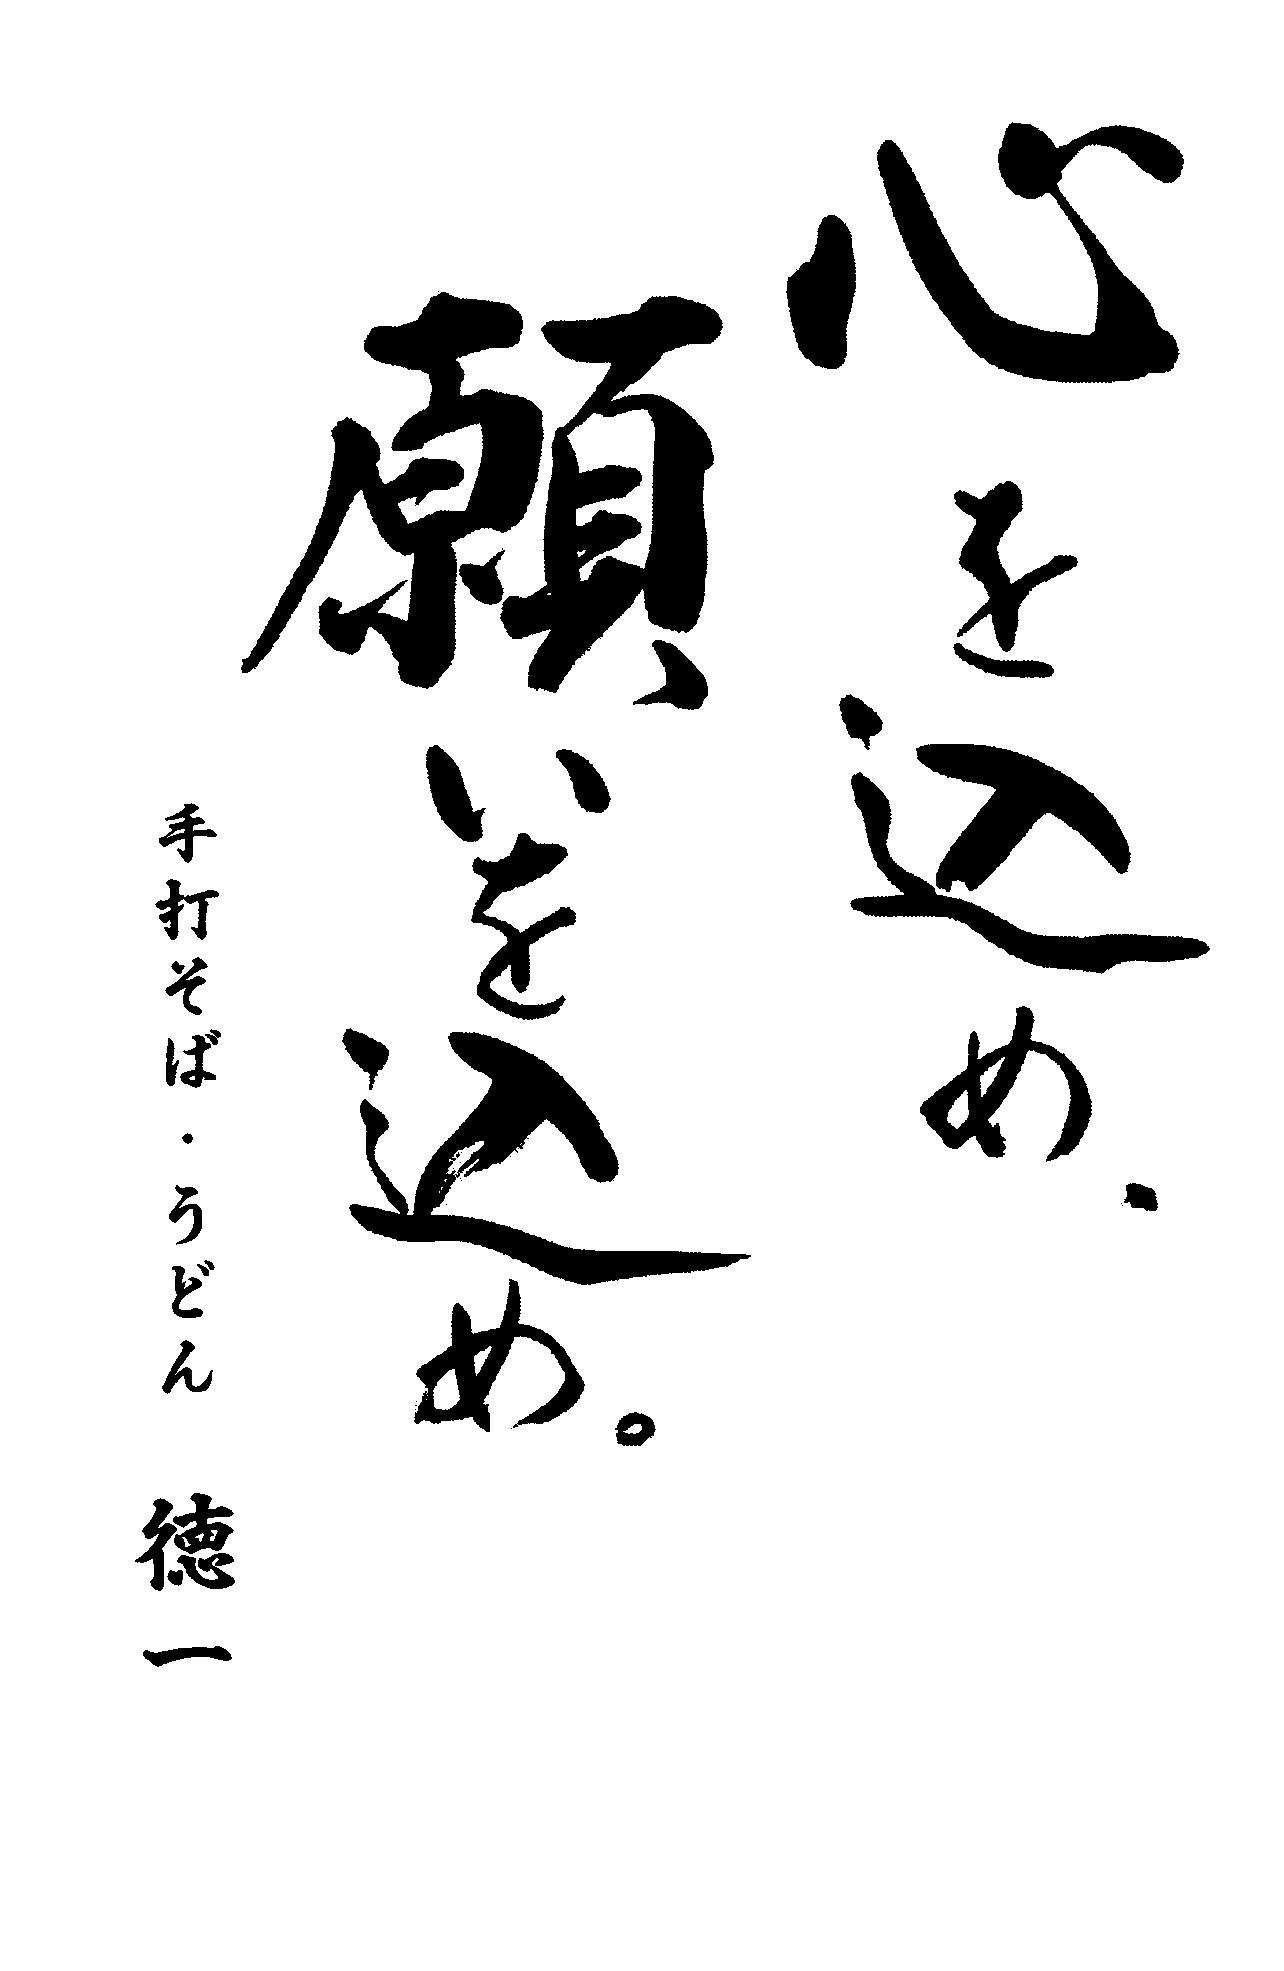 心を込め、
願いを込め。
手打そば・うどん 徳一